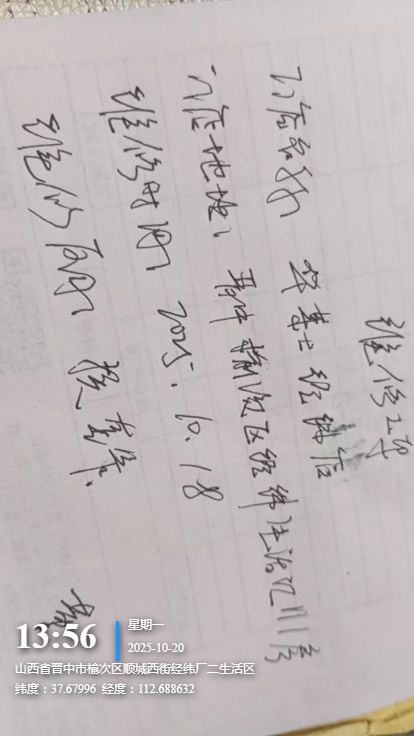 维修工单
门店名称 华莱士经纬店
门店地址 晋中榆次区经纬生活区川湾
维修时间 2025.10.18
维修内容 换
13:56
星期一
2025-10-20
山西省晋中市榆次区顺城西街经纬厂二生活区
纬度：37.67996 经度：112.688632